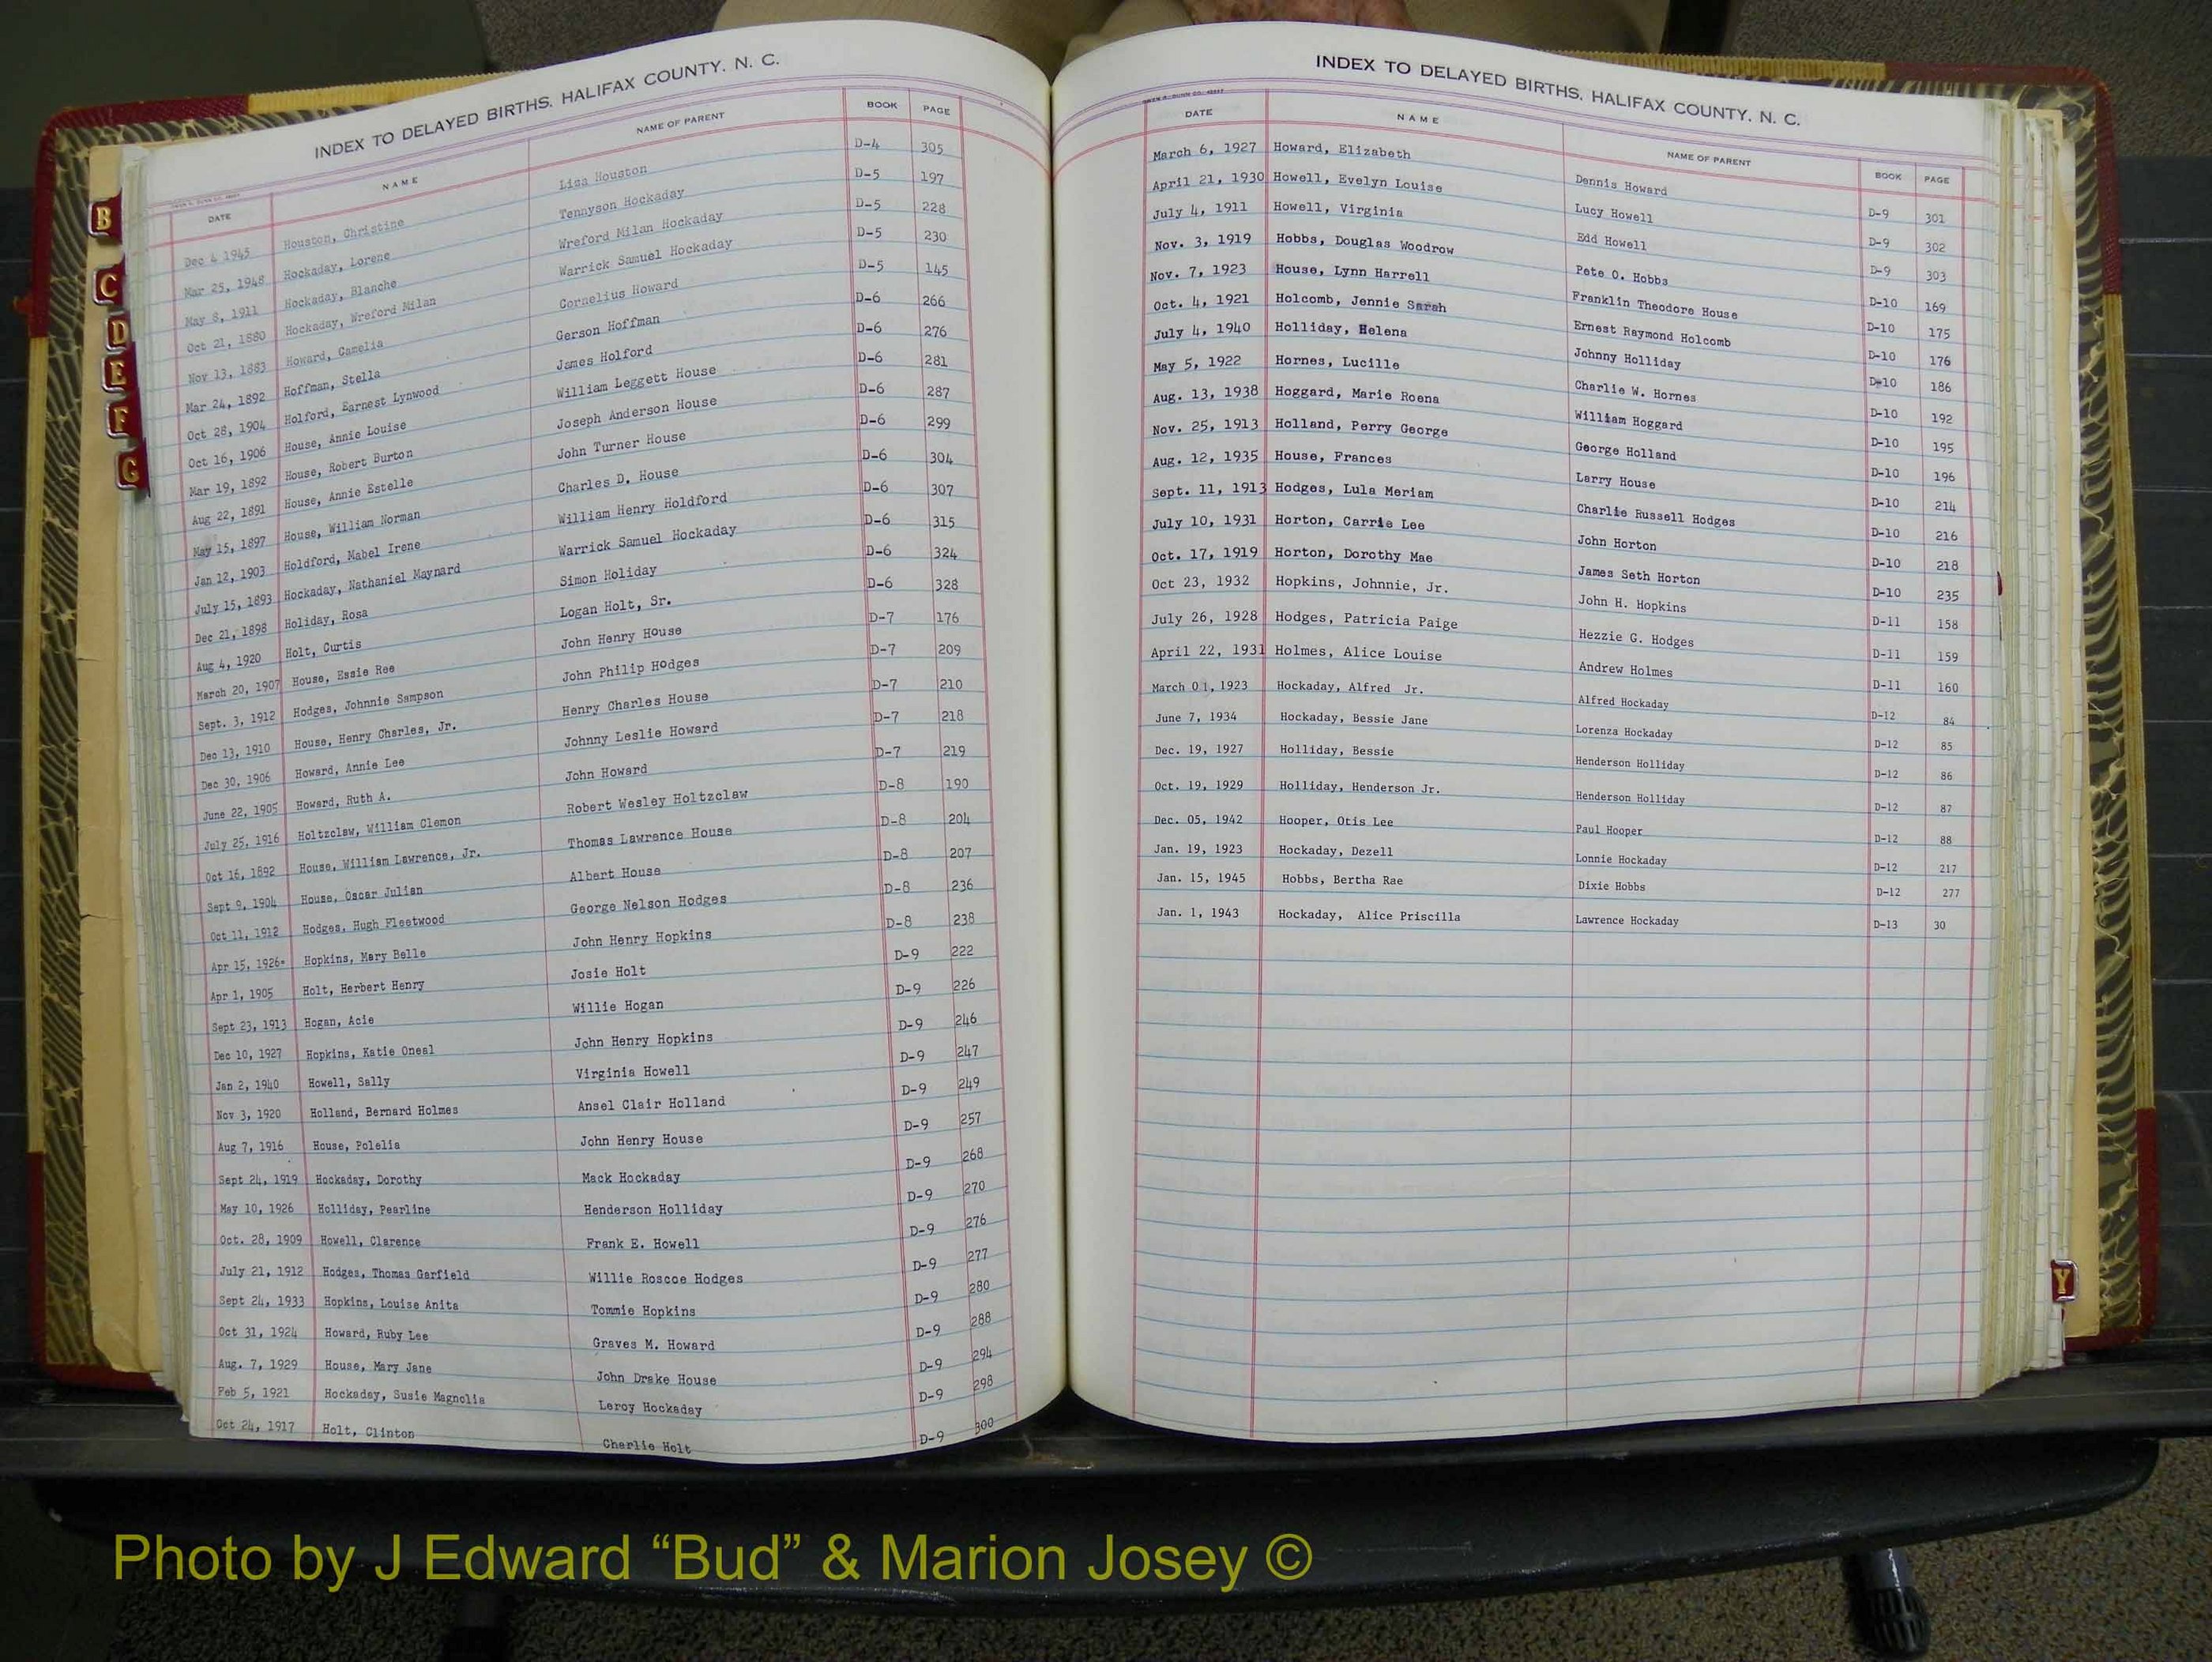 INDEX TO DELAYED BIRTHS, HALIFAX COUNTY, N. C.
DATE NAME NAME OF PARENT BOOK PAGE
Dec 4 1945 Houston, Christine Liza Houston D-4 305
Mar 25, 1948 Hockaday, Lorene Tennyson Hockaday D-5 197
May 8, 1911 Hockaday, Blanche Wreford Milan Hockaday D-5 228
Oct 21, 1880 Hockaday, Wreford Milan Warrick Samuel Hockaday D-5 230
Nov 13, 1883 Howard, Camelia Cornelius Howard D-5 145
Mar 24, 1892 Hoffman, Stella Gerson Hoffman D-6 266
Oct 28, 1904 Holford, Earnest Lynwood James Holford D-6 276
Oct 16, 1906 House, Annie Louise William Leggett House D-6 281
Mar 19, 1892 House, Robert Burton Joseph Anderson House D-6 287
Aug 22, 1891 House, Annie Estelle John Turner House D-6 299
May 15, 1897 House, William Norman Charles D. House D-6 304
Jan 12, 1903 Holdford, Mabel Irene William Henry Holdford D-6 307
July 15, 1893 Hockaday, Nathaniel Maynard Warrick Samuel Hockaday D-6 315
Dec 21, 1898 Holiday, Rosa Simon Holiday D-6 324
Aug 4, 1920 Holt, Curtis Logan Holt, Sr. D-6 328
March 20, 1907 House, Essie Ree John Henry House D-7 176
Sept. 3, 1912 Hodges, Johnnie Sampson John Philip Hodges D-7 209
Dec 13, 1910 House, Henry Charles, Jr. Henry Charles House D-7 210
Dec 30, 1906 Howard, Annie Lee Johnny Leslie Howard D-7 218
June 22, 1905 Howard, Ruth A. John Howard D-7 219
July 25, 1916 Holtzclaw, William Clemon Robert Wesley Holtzclaw D-8 190
Oct 16, 1892 House, William Lawrence, Jr. Thomas Lawrence House D-8 204
Sept 9, 1904 House, Oscar Julian Albert House D-8 207
Oct 11, 1912 Hodges, Hugh Fleetwood George Nelson Hodges D-8 236
Apr 15, 1926 Hopkins, Mary Belle John Henry Hopkins D-8 238
Apr 1, 1905 Holt, Herbert Henry Josie Holt D-9 222
Sept 23, 1913 Hogan, Acie Willie Hogan D-9 226
Dec 10, 1927 Hopkins, Katie Oneal John Henry Hopkins D-9 246
Jan 2, 1940 Howell, Sally Virginia Howell D-9 247
Nov 3, 1920 Holland, Bernard Holmes Ansel Clair Holland D-9 249
Aug 7, 1916 House, Polelia John Henry House D-9 257
Sept 24, 1919 Hockaday, Dorothy Mack Hockaday D-9 268
May 10, 1926 Holliday, Pearline Henderson Holliday D-9 270
Oct. 28, 1909 Howell, Clarence Frank E. Howell D-9 276
July 21, 1912 Hodges, Thomas Garfield Willie Roscoe Hodges D-9 277
Sept 24, 1933 Hopkins, Louise Anita Tommie Hopkins D-9 280
Oct 31, 1924 Howard, Ruby Lee Graves M. Howard D-9 288
Aug. 7, 1929 House, Mary Jane John Drake House D-9 294
Feb 5, 1921 Hockaday, Susie Magnolia Leroy Hockaday D-9 298
Oct 24, 1917 Holt, Clinton Charlie Holt D-9 300
B
C
D
E
F
G
INDEX TO DELAYED BIRTHS, HALIFAX COUNTY, N. C.
DATE NAME NAME OF PARENT BOOK PAGE
March 6, 1927 Howard, Elizabeth Dennis Howard D-9 301
April 21, 1930 Howell, Evelyn Louise Lucy Howell D-9 302
July 4, 1911 Howell, Virginia Edd Howell D-9 303
Nov. 3, 1919 Hobbs, Douglas Woodrow Pete O. Hobbs D-10 169
Nov. 7, 1923 House, Lynn Harrell Franklin Theodore House D-10 175
Oct. 4, 1921 Holcomb, Jennie Sarah Ernest Raymond Holcomb D-10 176
July 4, 1940 Holliday, Helena Johnny Holliday D-10 186
May 5, 1922 Hornes, Lucille Charlie W. Hornes D-10 192
Aug. 13, 1938 Hoggard, Marie Roena William Hoggard D-10 195
Nov. 25, 1913 Holland, Perry George George Holland D-10 196
Aug. 12, 1935 House, Frances Larry House D-10 214
Sept. 11, 1913 Hodges, Lula Meriam Charlie Russell Hodges D-10 216
July 10, 1931 Horton, Carrie Lee John Horton D-10 218
Oct. 17, 1919 Horton, Dorothy Mae James Seth Horton D-10 235
Oct 23, 1932 Hopkins, Johnnie, Jr. John H. Hopkins D-11 158
July 26, 1928 Hodges, Patricia Paige Hezzie G. Hodges D-11 159
April 22, 1931 Holmes, Alice Louise Andrew Holmes D-11 160
March 01, 1923 Hockaday, Alfred Jr. Alfred Hockaday D-12 84
June 7, 1934 Hockaday, Bessie Jane Lorenza Hockaday D-12 85
Dec. 19, 1927 Holliday, Bessie Henderson Holliday D-12 86
Oct. 19, 1929 Holliday, Henderson Jr. Henderson Holliday D-12 87
Dec. 05, 1942 Hooper, Otis Lee Paul Hooper D-12 88
Jan. 19, 1923 Hockaday, Dezell Lonnie Hockaday D-12 217
Jan. 15, 1945 Hobbs, Bertha Rae Dixie Hobbs D-12 277
Jan. 1, 1943 Hockaday, Alice Priscilla Lawrence Hockaday D-13 30
Y
Photo by J Edward “Bud” & Marion Josey ©